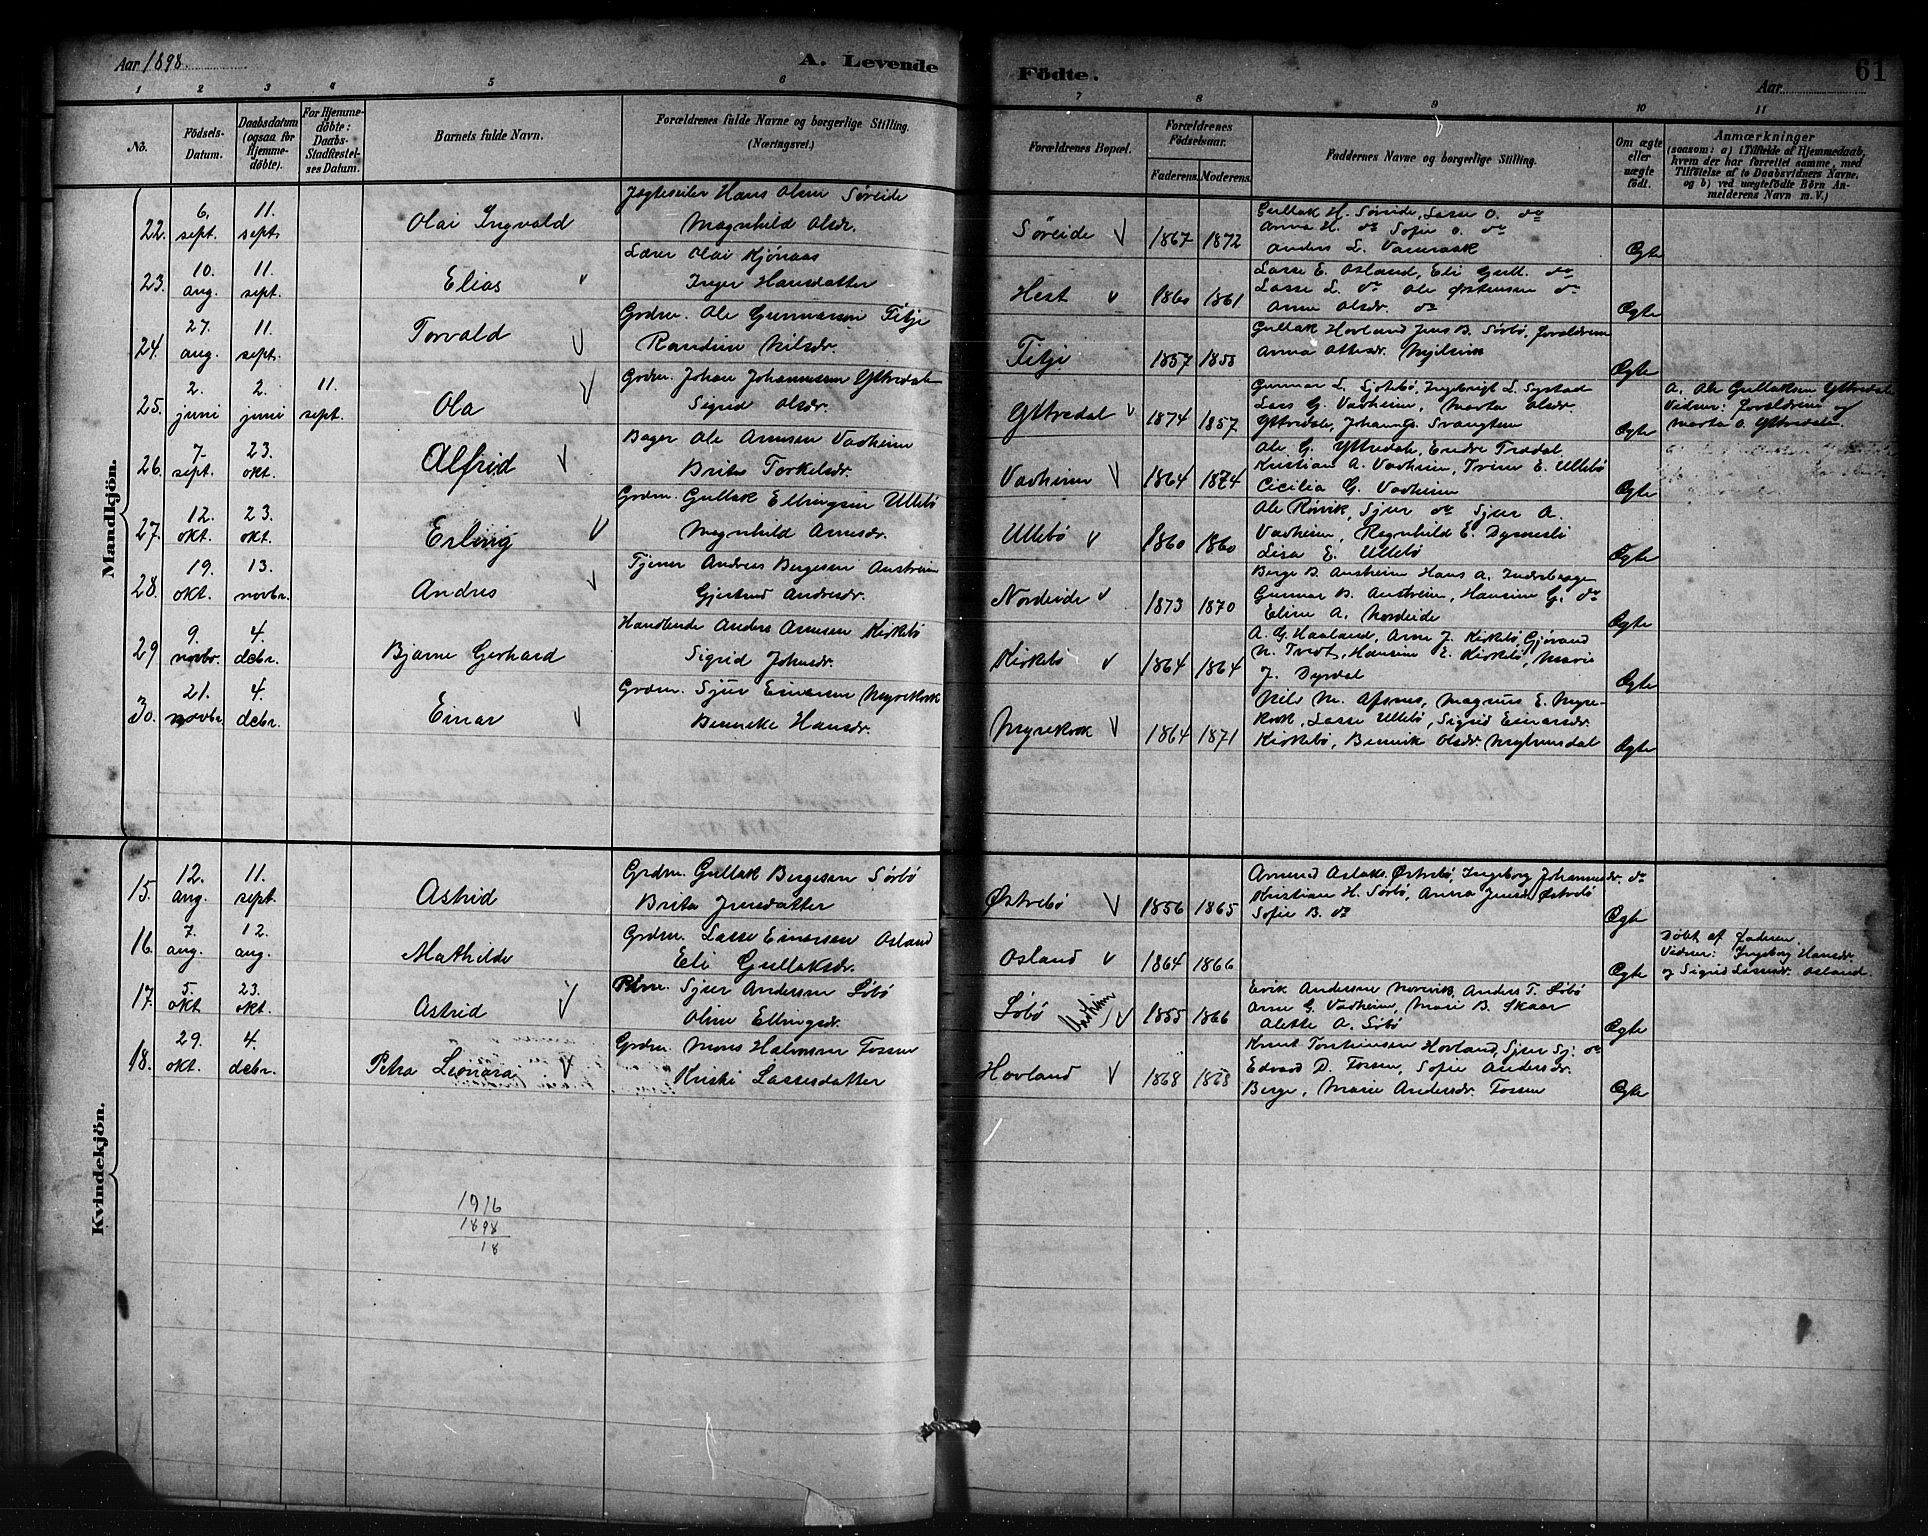 Aar 1898.
A. Levende Födte.
Aar
61
1 2 3 4 5 6 7 8 9 10 11
No.
Födsels-Datum.
Daabsdatum (ogsaa for Hjemmedøbte).
For Hjemmedøbte: Daabs-Stadfæstelses Datum.
Barnets fulde Navn.
Forældrenes fulde Navne og borgerlige Stilling. (Næringsvei.)
Forældrenes Bopæl.
Forældrenes Födselsaar.
Faderens. Moderens.
Faddernes Navne og borgerlige Stilling.
Om ægte eller uægte födt.
Anmærkninger
(saasom: a) i Tilfælde af Hjemmedaab,
hvem der har forrettet samme, med
Tilføielse af to Daabsvidners Navne,
og b) ved uægtefödte Börn An-
melderens Navn m. V.)
Mandkjön.
22. 6. sept. 11. sept. Olai Ingvald
Hans Olsen Söreide
Magnhild Olsdr.
Söreide V 1867 1872
Gullak H. Söreide, Lasse O. do
Anna H. do Sofie O. do
Anders L. Vamraak
Ægte
23. 10. aug. 11. sept. Elias
Lærer Olai Kjönaas
Inger Hansdatter
Hest V 1860 1861
Lasse E. Osland, Eli Gull. do
Lasse L. do Ole Østensen do
Anne Olsdr. do
Ægte
24. 27. aug. 11. sept. Torvald V
Grdm. Ole Gunnarsen Titje
Randine Nilsdr.
Titje 1857 1858
Gullak Hovland Jens B. Sörbö, forældrene
Anna Ottesdr.
Ægte
25. 2. juni 2. juni 11. sept. Ola V
Grdm. Johan Johannessen Yttredal
Sigrid Olsdr.
Yttredal V 1874 1857
Gunnar L. Sjötebö, Ingebrigt L. Systad
Lars G. Vadheim, Marta Olsdr.
Yttredal, Johan G. Svangtun
Ægte
A. Ole Gullaksen Yttredale
Vidner: forældrene og
Marta O. Yttredale.
26. 7. sept. 23. okt. Alfrid V
Bager Ole Arnesen Vadheim
Brita Torkelsdr.
Vadheim V 1864 1874
Ole G. Yttredale, Endre Tredal,
Kristian A. Vadheim, Trine E. Ullebö
Cicilia G. Vadheim
Ægte
27. 12. okt. 23. okt. Erling V
Grdm. Gullak Ellingsen Ullebö
Magnhild Arnesdr.
Ullebö V 1860 1860
Ole Risvik, Sjur do Sjur A.
Vadheim, Ragnhild E. Dysvesli
Lisa E. Ullebö
Ægte
28. 19. okt. 13. novbr. Andres V
Tjener Andreas Bergesen Austrein
Gjertrud Andresdr.
Nordeide V 1873 1870
Berge B. Austrein Hans A. Indrehaage
Gunnar B. Austrein, Hansine G. do
Eline A. Nordeide
Ægte
29 9. novbr. 4. debr. Bjarne Gerhard
Handlende Anders Arnesen Kirkebö
Sigrid Johnsdr.
Kirkebö V 1864 1864
A. G. Haaland, Arne J. Kirkebö, Gjörand
N. Tredt, Hansine E. Kirkebö, Marie
J. Dyrdal
Ægte
30. 21. novbr 4. debr. Einar V
Grdm. Sjur Einarsen Myrekrok
Benneke Hansdr.
Myrekrok V 1864 1871
Nils N. Afsnes, Magnus E. Myre-
krok, Lasse Ullebö, Sigrid Einarsdr.
Kirkebö, Bennik Olsdr.
Ægte
Kvindekjön.
15. 12. aug. 11. sept. Astrid
Grdm. Gullak Bergesen Sörbö
Brita Jensdatter
Østrebö V 1856 1865
Amund Aslaks. Østrebö, Ingeborg Johannesdr. do
Kristian H. Sörbö, Anna Jensdr Østrebö
Sofie B. do
Ægte
16. 7. aug. 12. aug. Mathilde
Grdm. Lasse Einarsen Osland
Eli Gullaksdr.
Osland V 1864 1866
Ægte
Döbt af Faderen.
Vidner: Ingeborg Hansdr
og Sigrid Larsdr. Osland.
17. 5. okt 23. okt. Astrid V
Sjur Andersen Löbö
Oline Ellingsdr.
Löbö Vadheim V 1855 1866
Erik Andersen Norevik, Anders T. Löbö
Arne G. Vadheim, Marie B. Skaar
Alette A. Löbö
Ægte
18. 29. okt. 4. debr. Petra Leonara V
Grdm. Mons Halvorsen Fossen
Kristi Lassesdatter
Hovland V 1868 1868
Knut Torsteinsen Hovland, Sjur Sj. do
Edvard D. Fossen, Sofie Andersdr.
Berge, Marie Andersdr. Fossen
Ægte
1916
1898
18